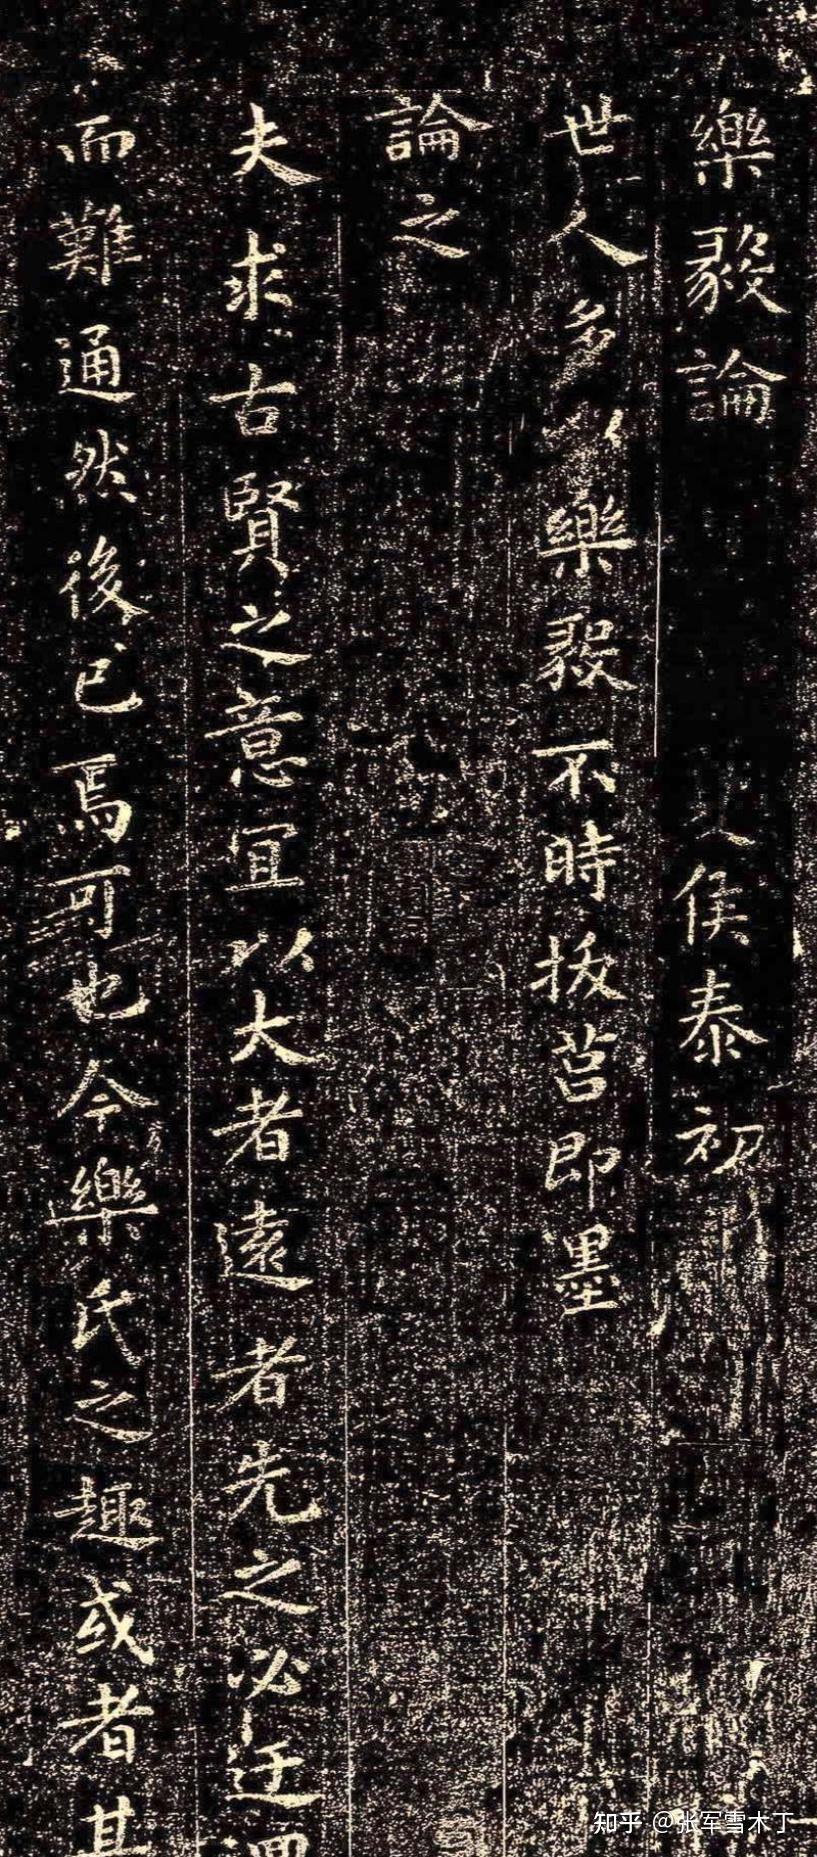 樂毅論 夏侯泰初
世人多以樂毅不時拔莒即墨
論之
夫求古賢之意宜以大者遠者先之必迂
而難通然後已焉可也今樂氏之趣或者其
知乎 @张军雪木丁